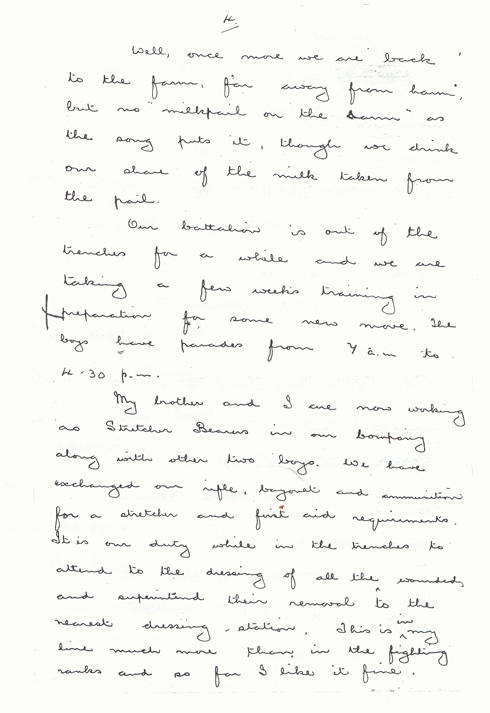 4.
Well, once more we are back
to the farm, "far away from harm",
but no "milkpail on the barm" as
the song puts it, though we drink
our share of the milk taken from
the pail.
Our battalion is out of the
trenches for a while and we are
taking a few weeks training in
preparation for some new move. The
boys have parades from 7 a.m to
4.30 p.m.
My brother and I are now working
as Stretcher Bearers in our Company
along with other two boys. We have
exchanged our rifle, bayonet and ammunition
for a stretcher and first aid requirements.
It is our duty while in the trenches to
attend to the dressing of all the wounded,
and superintend their removal to the
nearest dressing-station. This is in my
line much more than in the fighting
ranks and so far I like it fine.